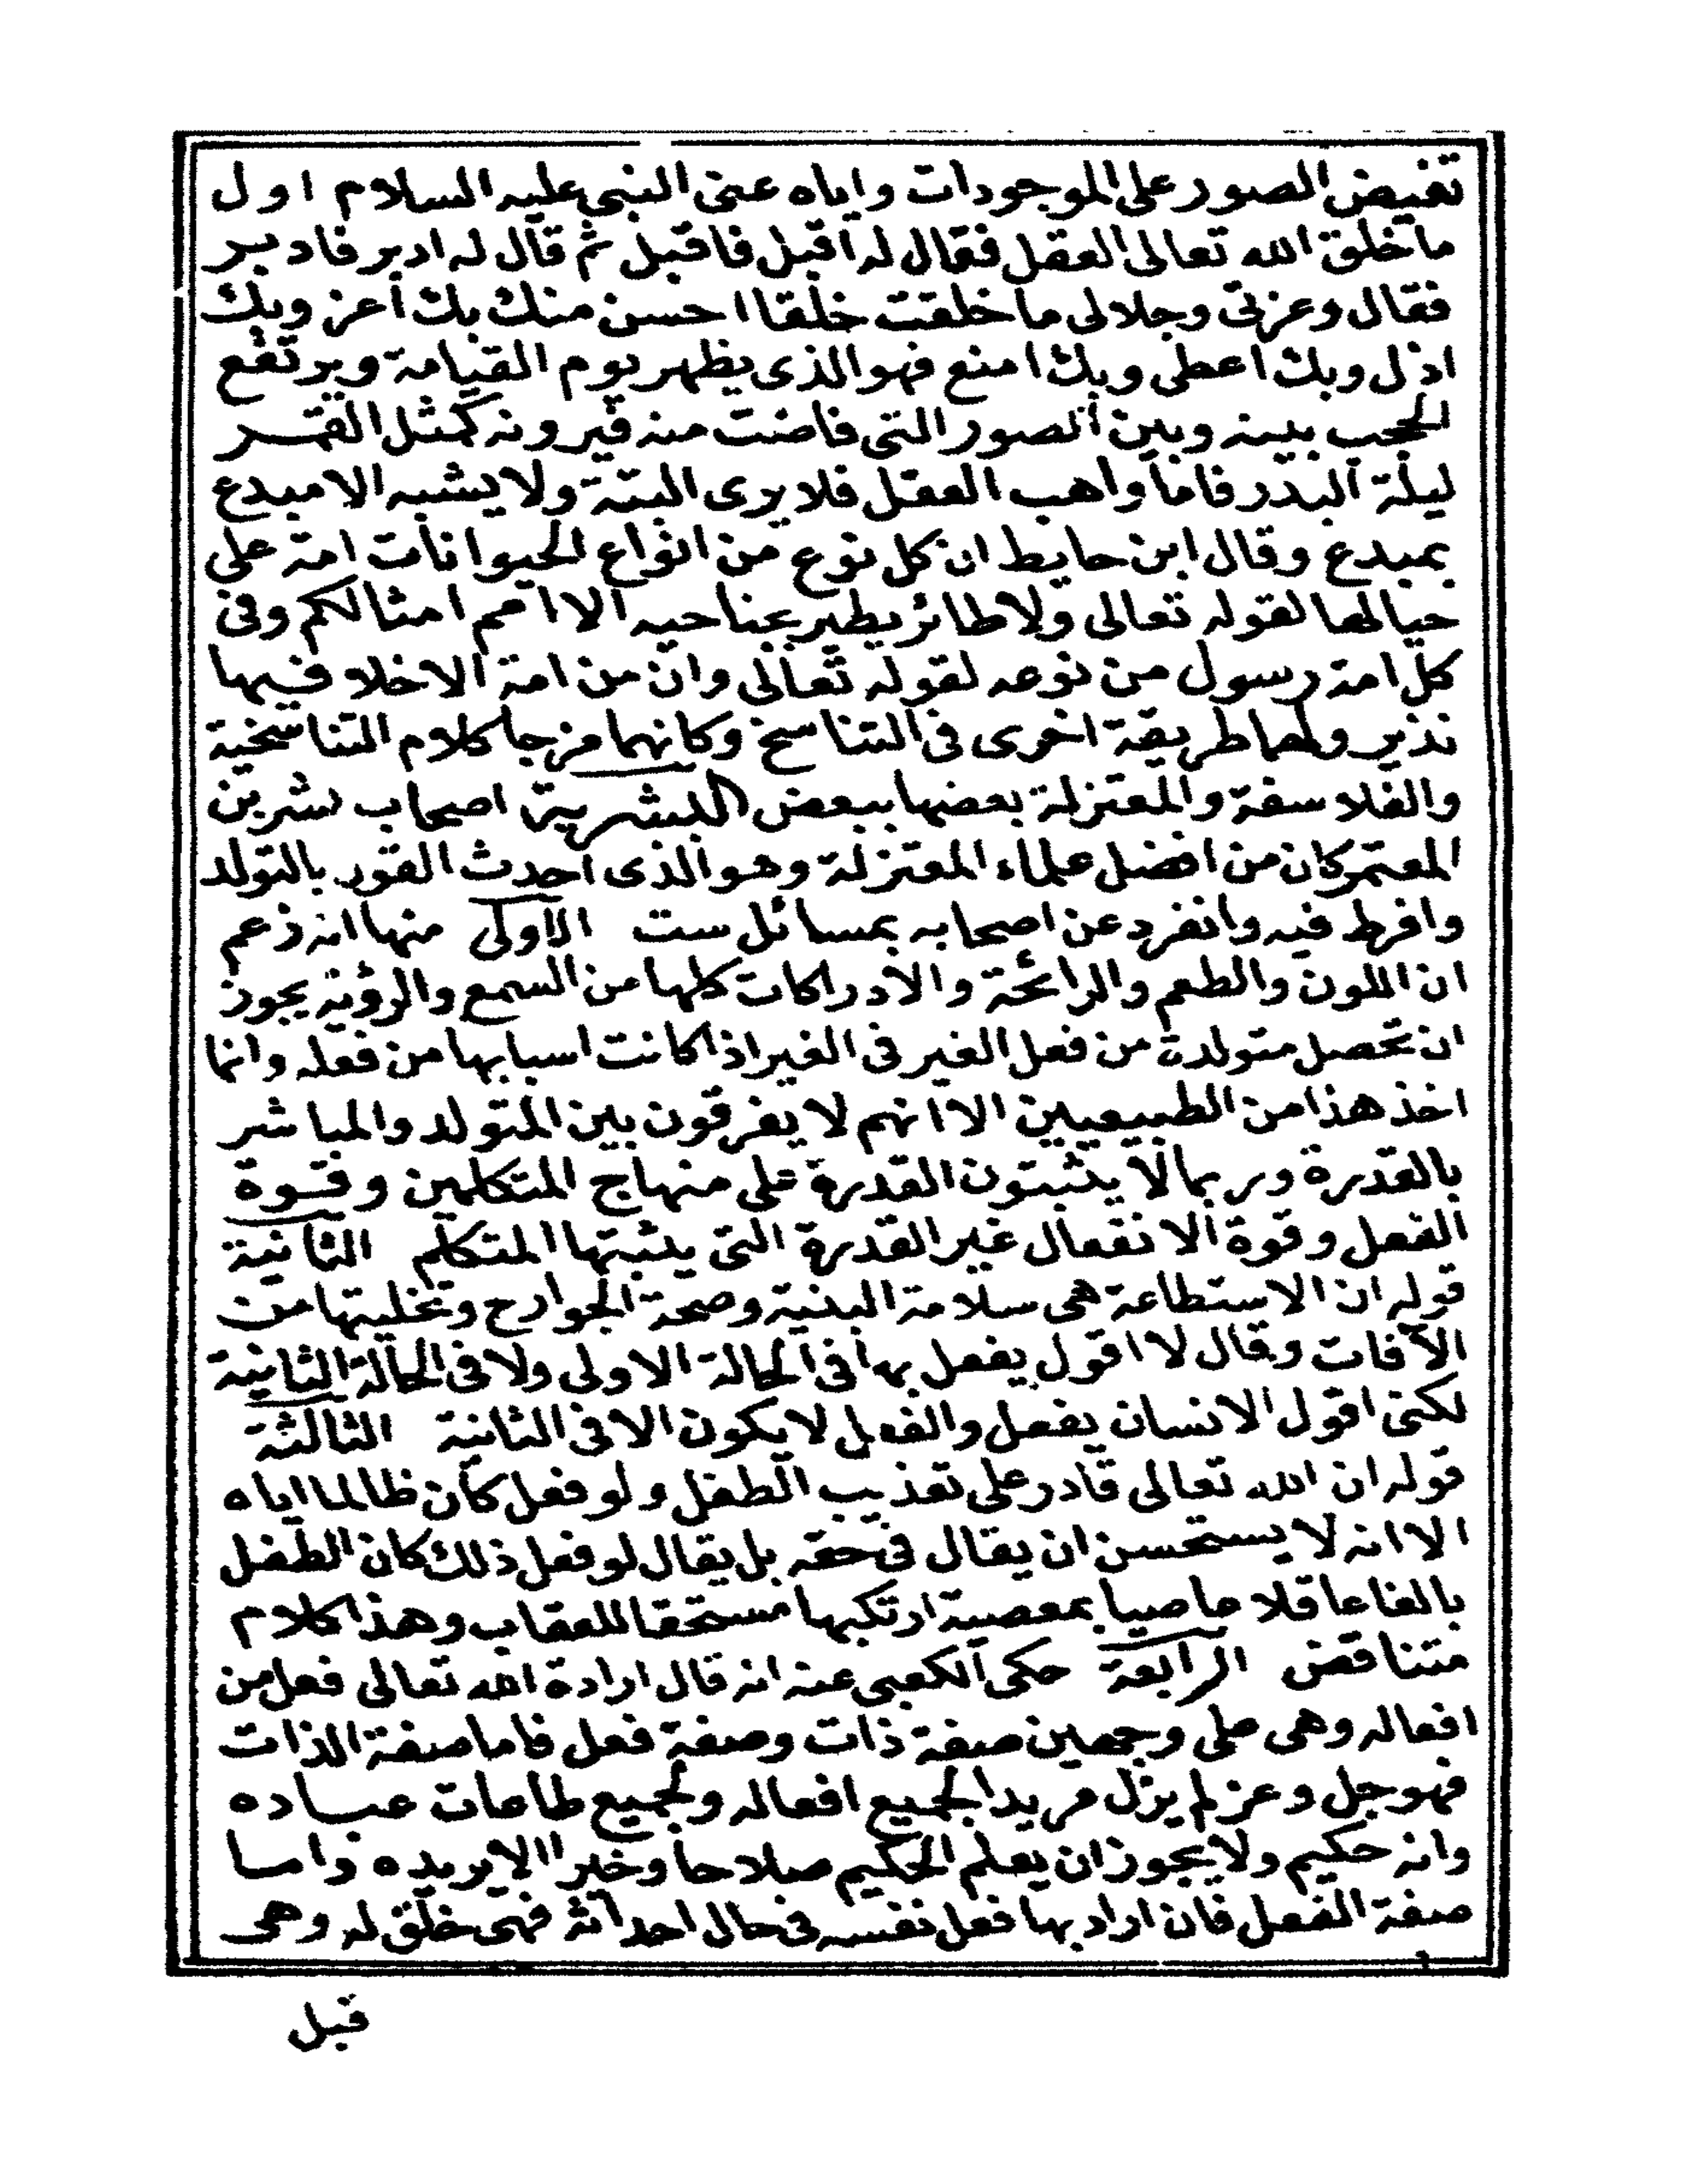 تفيض الصور على الموجودات واياه عنى النبي عليه السلام اول
ما خلق الله تعالى العقل فقال له اقبل فاقبل ثم قال له ادبر فادبر
فقال وعزتى وجلالى ما خلقت خلقا احسن منك بك أعز وبك
اذل وبك اعطى وبك امنع فهو الذى يظهر يوم القيامة ويرتفع
الحجب بينه وبين الصور التى فاضت منه فيرونه كمثل القمر
ليلة البدر فاما واهب العقل فلا يرى البتة ولا يشبه الا مبدع
بمبدع وقال ابن حايط ان كل نوع من انواع الحيوانات امة على
حيالها لقوله تعالى ولا طائر يطير بجناحيه الا امم امثالكم وفى
كل امة رسول من نوعه لقوله تعالى وان من امة الا خلا فيها
نذير ولهما طريقة اخرى فى التناسخ وكانهما مزجا كلام التناسخية
والفلاسفة والمعتزلة بعضها ببعض البشرية اصحاب بشر بن
المعتمر كان من افضل علماء المعتزلة وهو الذى احدث القول بالتولد
وافرط فيه وانفرد عن اصحابه بمسائل ست الاولى منها انه زعم
ان اللون والطعم والرائحة والادراكات كلها من السمع والرؤية يجوز
ان تحصل متولدة من فعل الغير فى الغير اذا كانت اسبابها من فعله وانما
اخذ هذا من الطبيعيين الا انهم لا يفرقون بين المتولد والمباشر
بالقدرة وربما لا يثبتون القدرة على منهاج المتكلمين وقوة
الفعل وقوة الانفعال غير القدرة التى يثبتها المتكلم الثانية
قوله ان الاستطاعة هى سلامة البنية وصحة الجوارح وتخليتها من
الآفات وقال لا اقول يفعل بها فى الحالة الاولى ولا فى الحالة الثانية
لكنى اقول الانسان يفعل والفعل لا يكون الا فى الثانية الثالثة
قوله ان الله تعالى قادر على تعذيب الطفل ولو فعل كان ظالما اياه
الا انه لا يستحسن ان يقال فى حقه بل يقال لو فعل ذلك كان الطفل
بالغا عاقلا عاصيا بمعصية ارتكبها مستحقا للعقاب وهذا كلام
متناقض الرابعة حكى الكعبى عنه انه قال ارادة الله تعالى فعل من
افعاله وهى على وجهين صفة ذات وصفة فعل فاما صفة الذات
فهو جل وعز لم يزل مريدا لجميع افعاله ولجميع طاعات عباده
وانه حكيم ولا يجوز ان يعلم الحكيم صلاحا وخيرا الا يريده واما
صفة الفعل فان اراد بها فعل نفسه فى حال احداثه فهى خلق له وهى
قبل